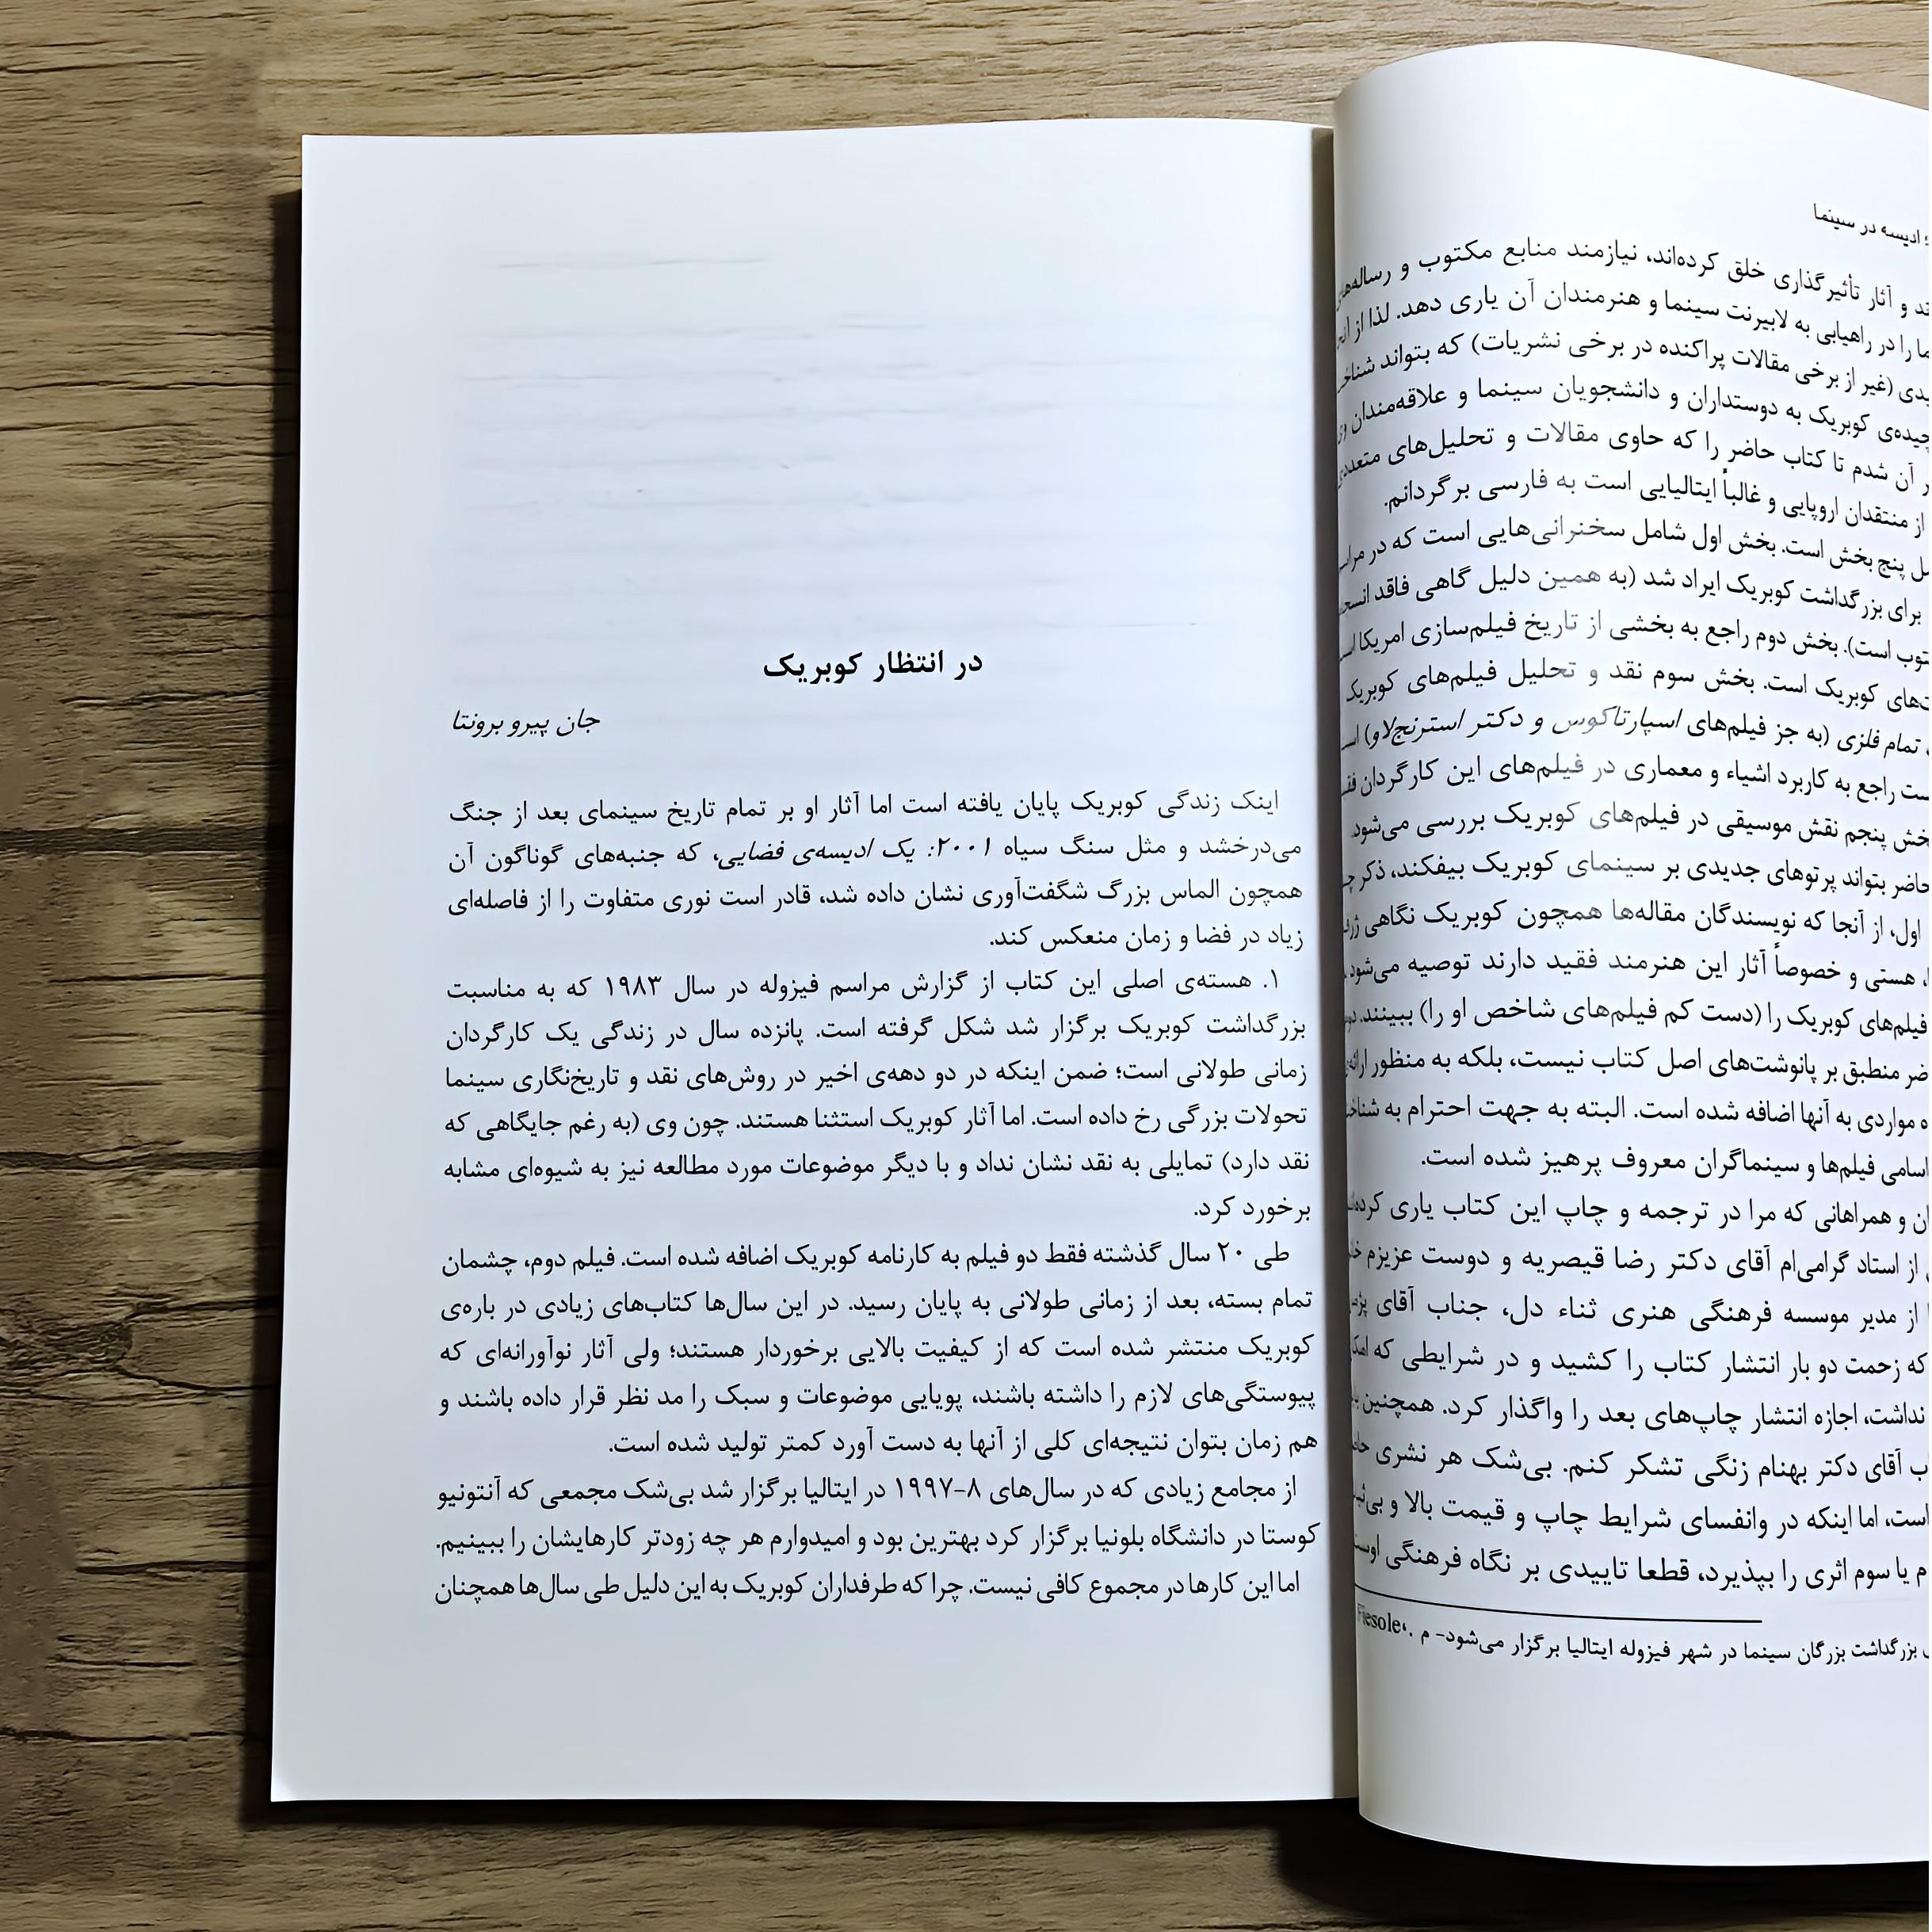 ادیسه در سینما
و آثار تأثیرگذاری خلق کرده‌اند، نیازمند منابع مکتوب و رساله‌های
را در راهیابی به لابیرنت سینما و هنرمندان آن یاری دهد. لذا از
(غیر از برخی مقالات پراکنده در برخی نشریات) که بتواند
کوبریک به دوستداران و دانشجویان سینما و علاقه‌مندان
آن شدم تا کتاب حاضر را که حاوی مقالات و تحلیل‌های متعددی
از منتقدان اروپایی و غالباً ایتالیایی است به فارسی برگردانم.
پنج بخش است. بخش اول شامل سخنرانی‌هایی است که در
برای بزرگداشت کوبریک ایراد شد (به همین دلیل گاهی فاقد
است). بخش دوم راجع به بخشی از تاریخ فیلم‌سازی امریکا
کوبریک است. بخش سوم نقد و تحلیل فیلم‌های کوبریک
تمام فلزی (به جز فیلم‌های اسپارتاکوس و دکتر استرنج‌لاو)
راجع به کاربرد اشیاء و معماری در فیلم‌های این کارگردان
پنجم نقش موسیقی در فیلم‌های کوبریک بررسی می‌شود.
حاضر بتواند پرتوهای جدیدی بر سینمای کوبریک بیفکند، ذکر
اول، از آنجا که نویسندگان مقاله‌ها همچون کوبریک نگاهی
هستی و خصوصاً آثار این هنرمند فقید دارند توصیه می‌شود
فیلم‌های کوبریک را (دست کم فیلم‌های شاخص او را) ببینند.
منطبق بر پانوشت‌های اصل کتاب نیست، بلکه به منظور
مواردی به آنها اضافه شده است. البته به جهت احترام به
اسامی فیلم‌ها و سینماگران معروف پرهیز شده است.
و همراهانی که مرا در ترجمه و چاپ این کتاب یاری
از استاد گرامی‌ام آقای دکتر رضا قیصریه و دوست عزیزم
از مدیر موسسه فرهنگی هنری ثناء دل، جناب آقای
که زحمت دو بار انتشار کتاب را کشید و در شرایطی که
نداشت، اجازه انتشار چاپ‌های بعد را واگذار کرد. همچنین
آقای دکتر بهنام زنگی تشکر کنم. بی‌شک هر نشری
است، اما اینکه در وانفسای شرایط چاپ و قیمت بالا و
یا سوم اثری را بپذیرد، قطعا تاییدی بر نگاه فرهنگی
Fiesole
بزرگداشت بزرگان سینما در شهر فیزوله ایتالیا برگزار می‌شود- م.
در انتظار کوبریک
جان پیرو برونتا
اینک زندگی کوبریک پایان یافته است اما آثار او بر تمام تاریخ سینمای بعد از جنگ
می‌درخشد و مثل سنگ سیاه ۲۰۰۱: یک ادیسه‌ی فضایی، که جنبه‌های گوناگون آن
همچون الماس بزرگ شگفت‌آوری نشان داده شد، قادر است نوری متفاوت را از فاصله‌ای
زیاد در فضا و زمان منعکس کند.
۱. هسته‌ی اصلی این کتاب از گزارش مراسم فیزوله در سال ۱۹۸۳ که به مناسبت
بزرگداشت کوبریک برگزار شد شکل گرفته است. پانزده سال در زندگی یک کارگردان
زمانی طولانی است؛ ضمن اینکه در دو دهه‌ی اخیر در روش‌های نقد و تاریخ‌نگاری سینما
تحولات بزرگی رخ داده است. اما آثار کوبریک استثنا هستند. چون وی (به رغم جایگاهی که
نقد دارد) تمایلی به نقد نشان نداد و با دیگر موضوعات مورد مطالعه نیز به شیوه‌ای مشابه
برخورد کرد.
طی ۲۰ سال گذشته فقط دو فیلم به کارنامه کوبریک اضافه شده است. فیلم دوم، چشمان
تمام بسته، بعد از زمانی طولانی به پایان رسید. در این سال‌ها کتاب‌های زیادی در باره‌ی
کوبریک منتشر شده است که از کیفیت بالایی برخوردار هستند؛ ولی آثار نوآورانه‌ای که
پیوستگی‌های لازم را داشته باشند، پویایی موضوعات و سبک را مد نظر قرار داده باشند و
هم زمان بتوان نتیجه‌ای کلی از آنها به دست آورد کمتر تولید شده است.
از مجامع زیادی که در سال‌های ۸-۱۹۹۷ در ایتالیا برگزار شد بی‌شک مجمعی که آنتونیو
کوستا در دانشگاه بلونیا برگزار کرد بهترین بود و امیدوارم هر چه زودتر کارهایشان را ببینیم.
اما این کارها در مجموع کافی نیست. چرا که طرفداران کوبریک به این دلیل طی سال‌ها همچنان